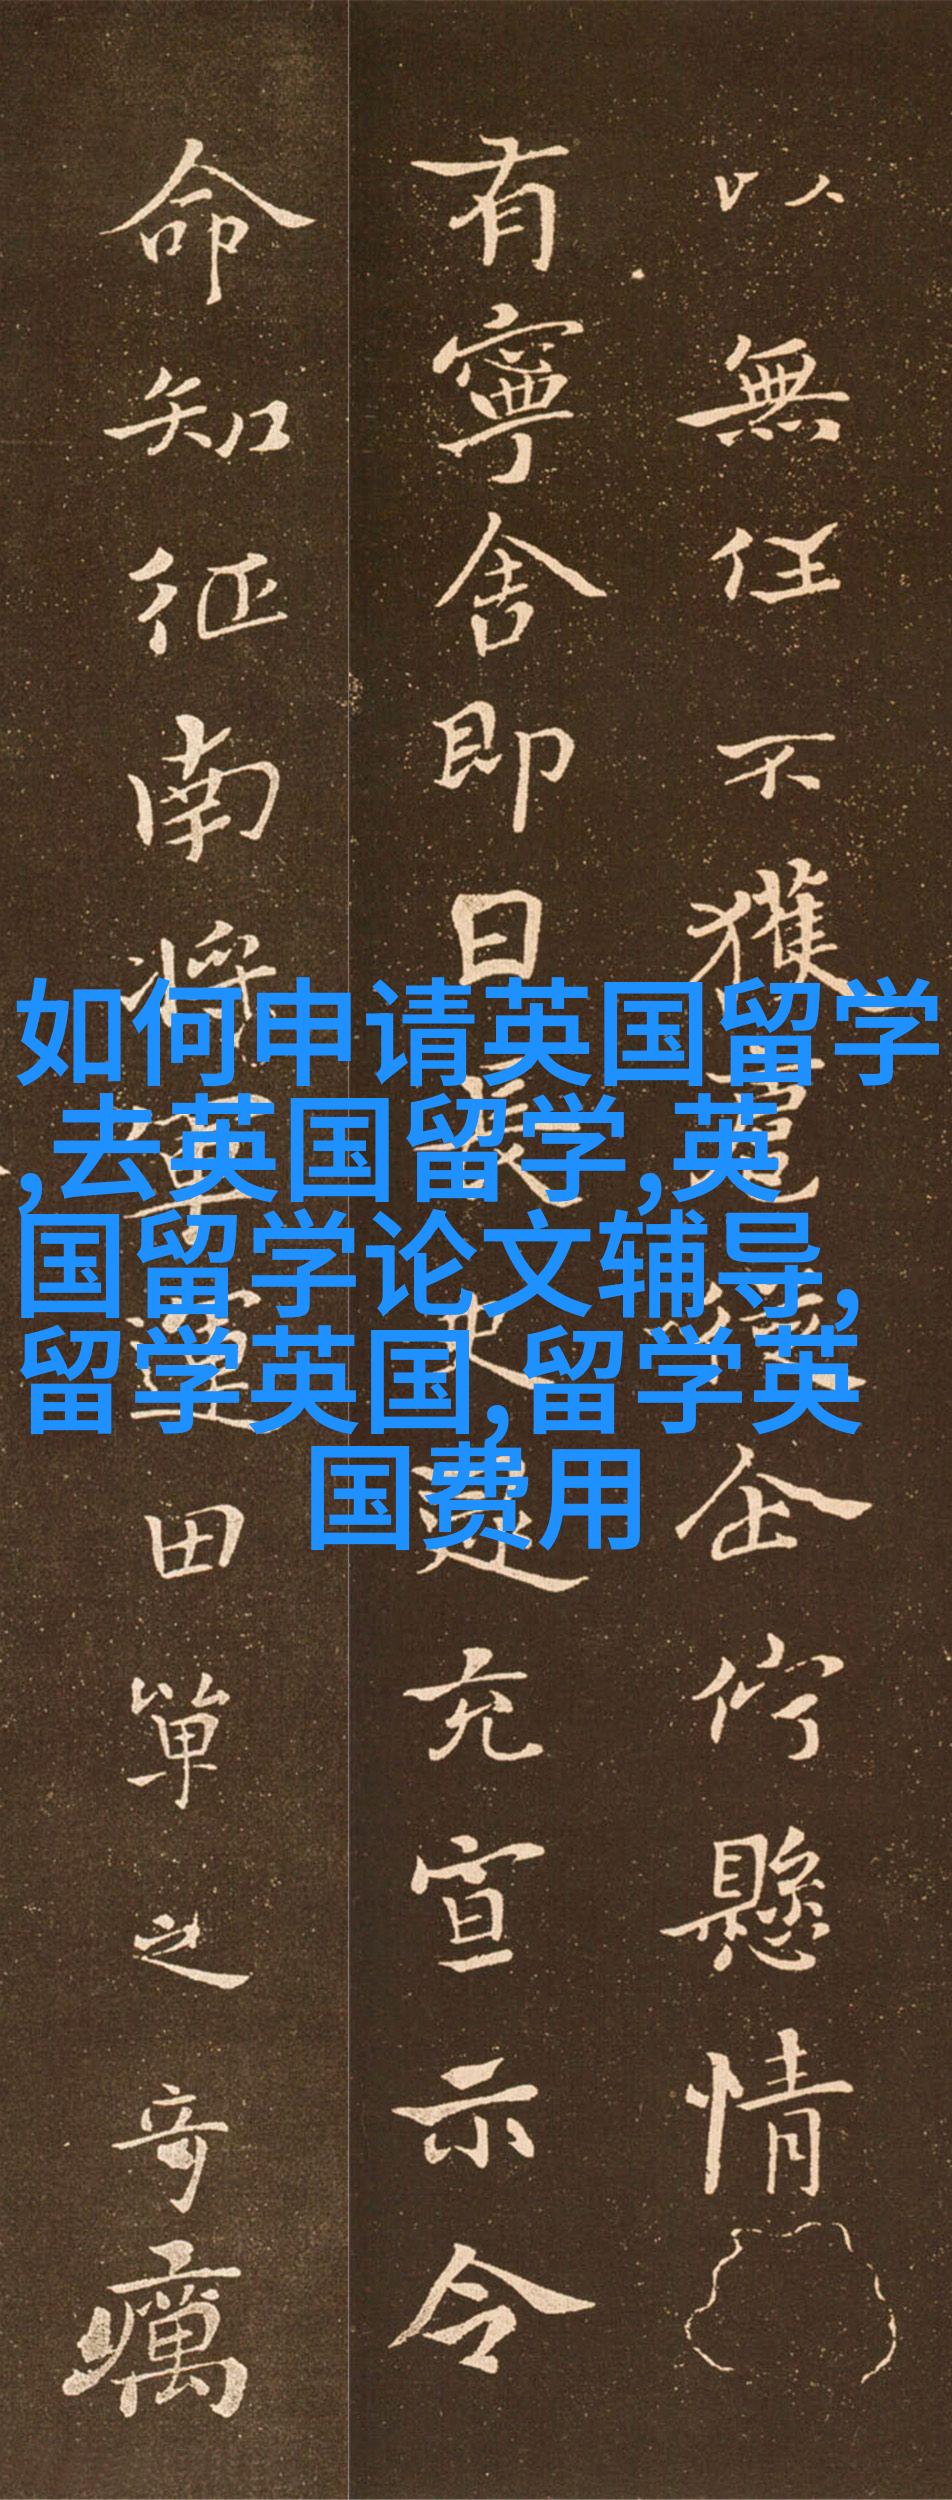 以無任不獲扈從企佇懸情
有寧舍即日長史逯充宣示令
命知征南將軍運田單之奇癘
如何申请英国留学
,去英国留学,英
国留学论文辅导,
留学英国,留学英
国费用